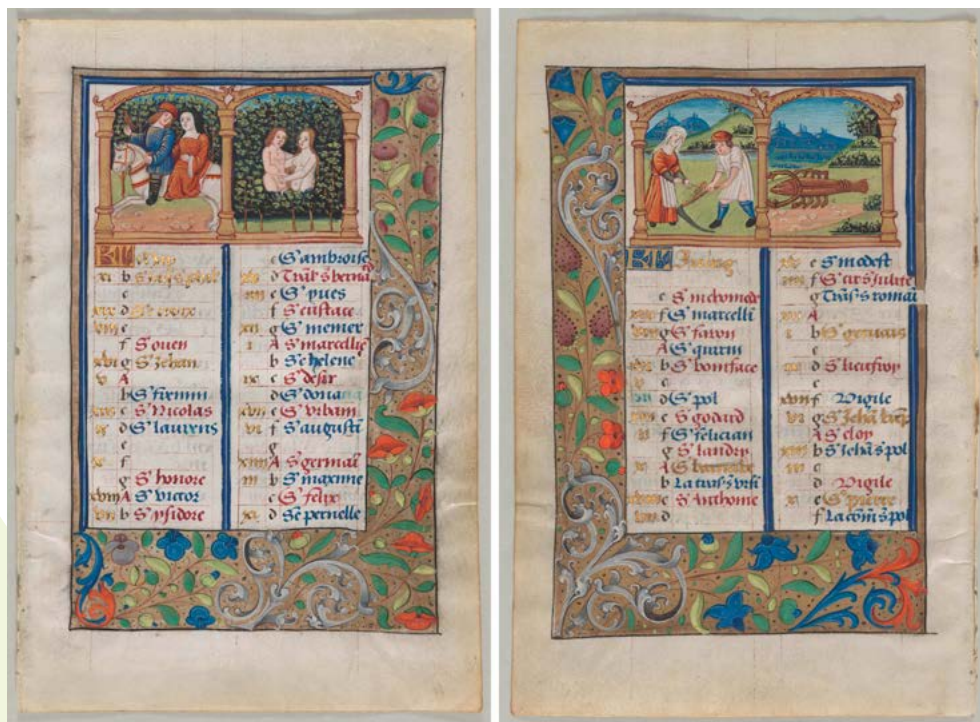 KL May
xi b S iaqs phle
c
xix d Ste croix
viii e
f S ouen
xvi g S Jehan
v A
b S firmin
xiii c S Nicolas
ii d S laurens
e
x f
g S honore
xviii A S victor
vii b S ysidore
c S ambroise
xv d Trans s bernard
iiii e S yues
f S eustace
xii g S memer
i A S marcellie
b Se helene
ix c S desir
d S donatian
xvii e S vrbain
vi f S augusti
g
xiiii A S germai
iii b S maxime
c S felix
xi d Se pernelle
KL Juing
e S nichomede
f S marcelli
g S faron
A S quirin
b S boniface
c
d S pol
e S godard
f S felician
g S landry
A S barnabe
b La trans s vrsi
c S Anthoine
d
e S modest
f S cir s Julite
g Trans s romai
A
b S geruais
c
d S lieufroy
e
f Vigile
g S Jehan bapt
A S eloy
b S Jehan s pol
c
d Vigile
e S pierre
f La com s pol